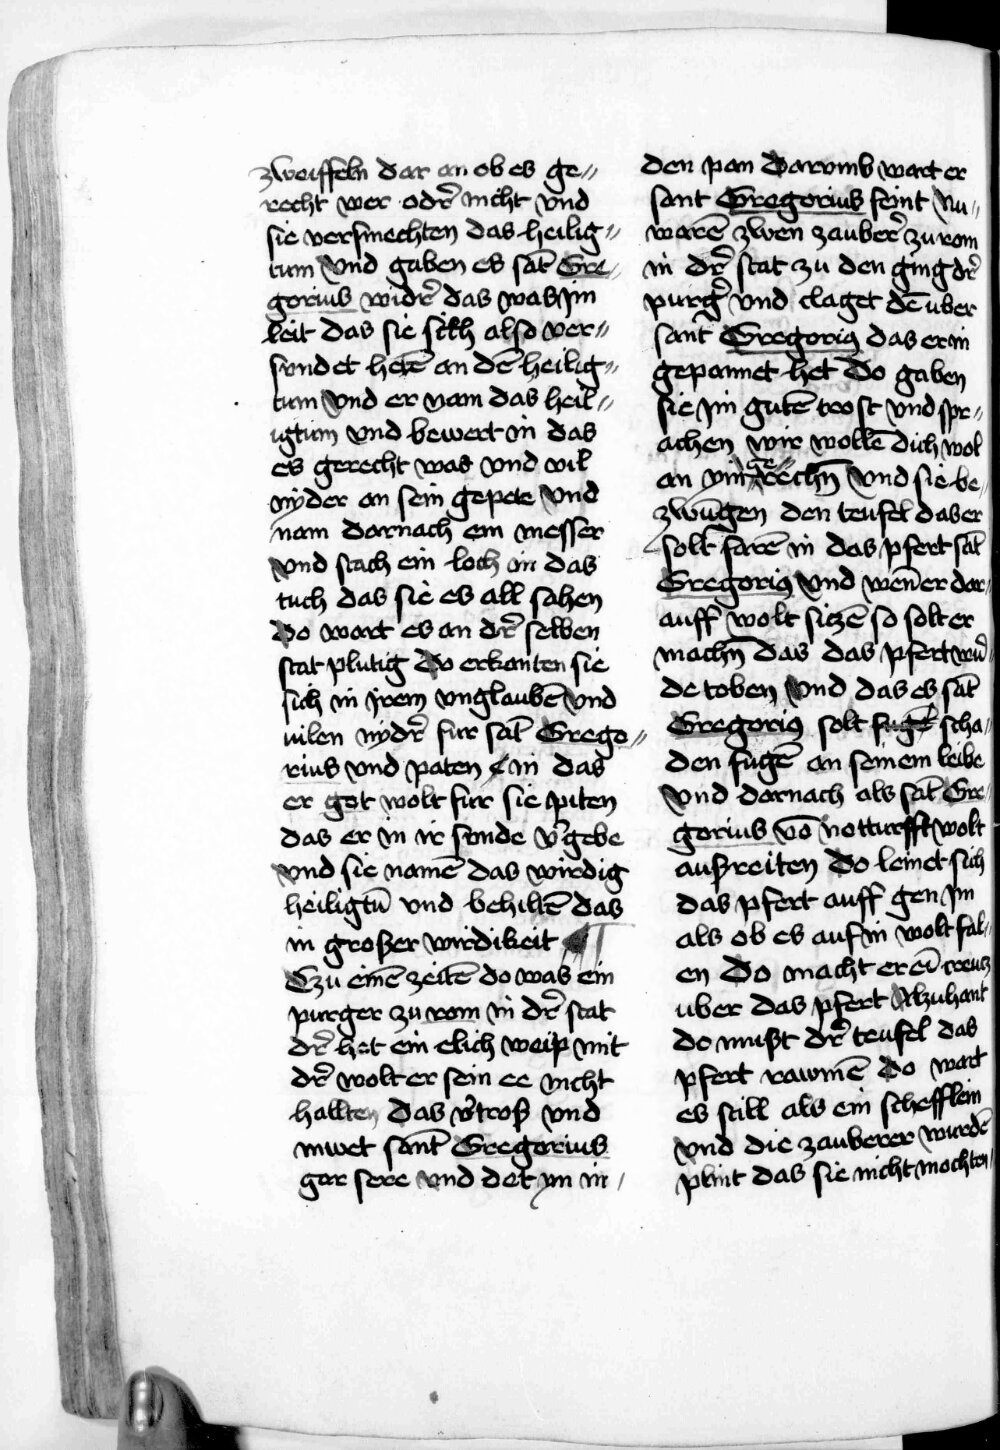 zweiffeln dar an ob es ge⸗
recht wer odr̄ nicht vnd
sie versmechten das heilig⸗
tum Vnd gaben es sāt Gre⸗
gorius widr̄ das was Jm
leit das sie sich also ver⸗
sundet hetē an dē heilig⸗
tum Vnd er nam das heil⸗
igtum vnd bewert in das
es gerecht was vnd vil
nyder an sein gepete Vnd
nam darnach ein messer
Vnd stach ein loch in das
tuch das sie es all sahen
Do wart es an dr̄ selben
stat plutig Do erkanten sie
sich in jrem vnglaubē Vnd
vilen nydr̄ fur sāt Grego⸗
rius vnd paten in das
er got wolt fur sie piten
das er in ir sunde v̄gebe
Vnd sie namē das wirdig
heiligtū vnd behiltē das
in großer wirdikeit
Czu einē zeitē do was ein
purger zu rom in dr̄ stat
dr̄ het ein elich weip mit
dr̄ wolt er sein ee nicht
hallten das v̄troß vnd
mwet sant̄ Gregorius
gar sere vnd det yn in /
den pan Darvmb wart er
sant Gregorius feint Nu⸗
warē zwen zauber̄ zu rom
in dr̄ stat zu den ging dr̄
purgr̄ Vnd claget dē uber
sant̄ Gregorius das er in
gepannet het Do gaben
sie Jm gutē trost vnd spr⸗
achen wir wollē dich wol
an ym gerechn̄ Vnd sie be⸗
zwūgen den teufel das er
solt farē in das pfert sāt
Gregorius Vnd wen̄ er dar⸗
auff wolt sitzē so solt er
machn̄ das das pfert wu᷑⸗
de toben Vnd das es sāt
Gregorius solt fugē scha⸗
den fugē an seinem leibe
Vnd darnach als sāt Gre⸗
gorius vō notturfft wolt
außreiten Do leinet sich
das pfert auff gen Jm
als ob es auf in wolt fal⸗
en Do macht er eī creutz
uber das pfert Alzuhant
do must dr̄ teufel das
pfert rawmē Do wart
es still als ein schefflein
Vnd die zauberer wurdē
plint das sie nicht mochten⸗